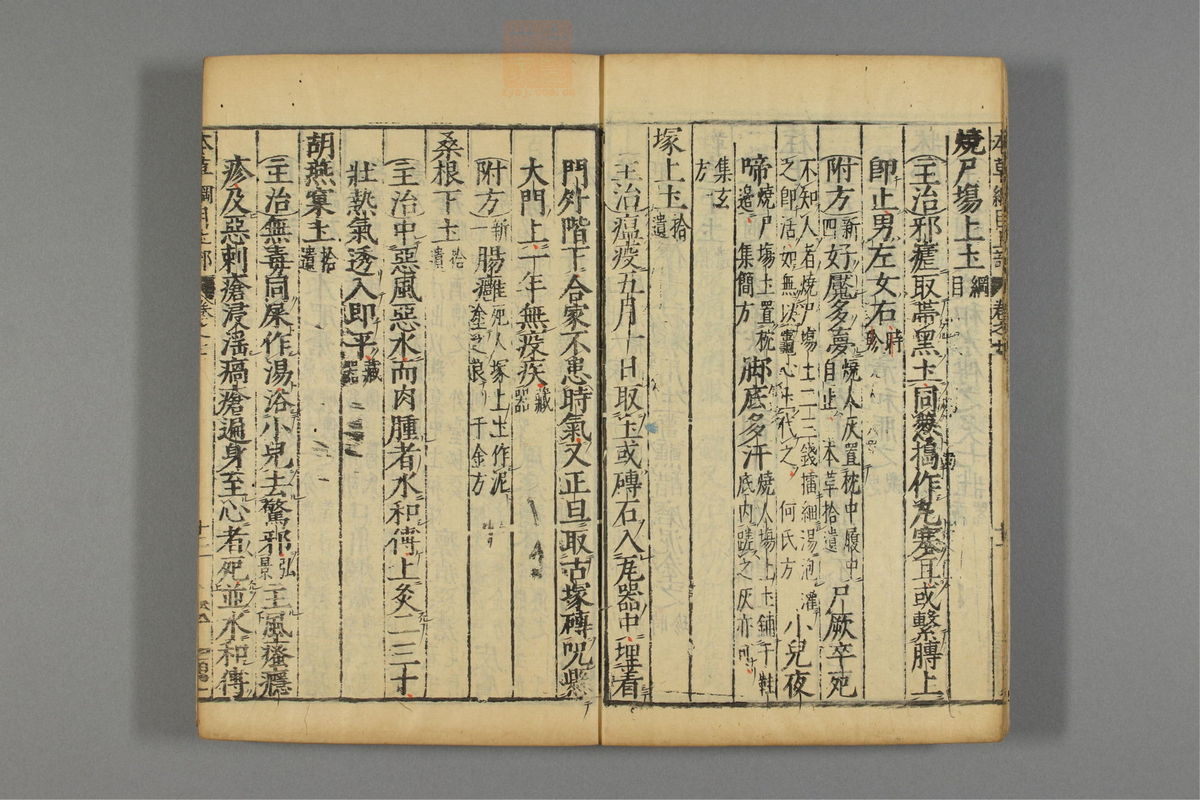 燒尸塲上土綱目
主治邪瘧取帶黑土同葱搗作丸塞耳或繫膊上
即止男左女右時珍
附方新四好魘多夢燒人灰置枕中履中自止 本草拾遺尸厥卒死
不知人者燒尸塲土二三錢擂細湯泡灌之即活如無以竈心土代之 何氏方小兒夜
啼燒尸塲土置枕邊 集簡方脚底多汗燒人塲上土鋪于鞋底内蹉之灰亦可
集玄方
塚上土拾遺
主治瘟疫五月一日取土或磚石入瓦器中埋着
門外階下合家不患時氣又正旦取古塚磚咒懸
大門上一年無疫疾藏器
附方新一腸癰死人塚上土作泥塗之良 千金方
桑根下土拾遺
主治中惡風惡水而肉腫者水和傅上灸二三十
壯熱氣透入即平藏器
胡燕窠土拾遺
主治無毒同屎作湯浴小兒去驚邪弘景主風瘙癮
疹及惡刺瘡浸淫瘑瘡遍身至心者死並水和傅